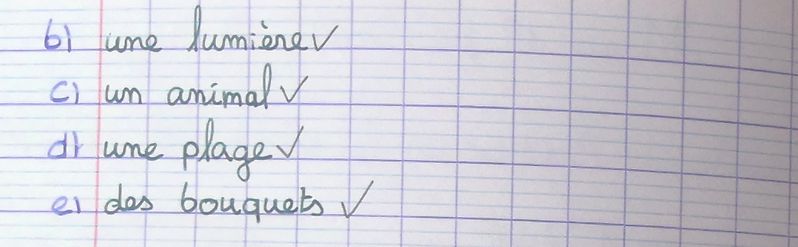 b) une lumière ✓
c) un animal ✓
d) une plage ✓
e) des bouquets ✓